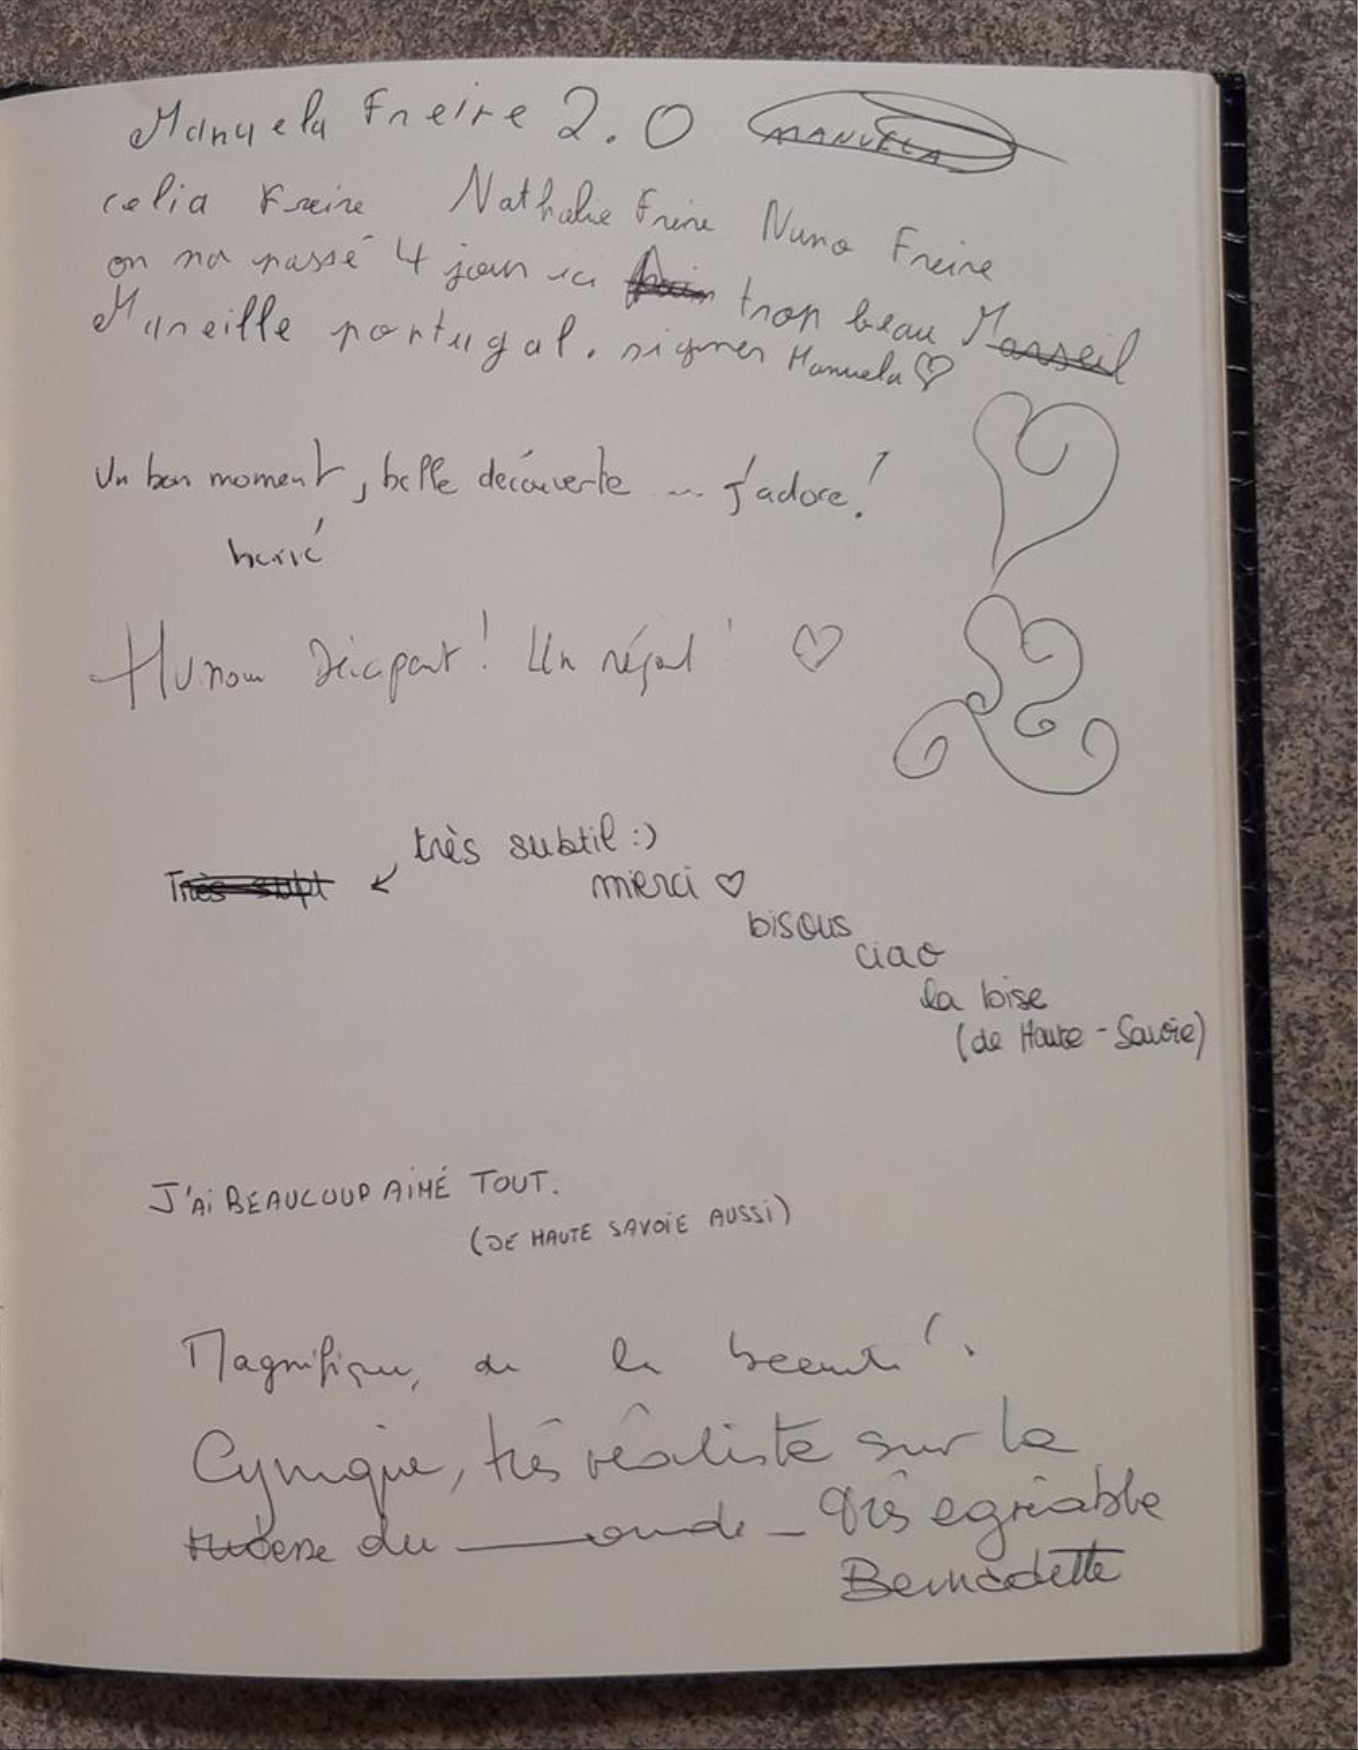 Manuela Freire 2.0 MANUELA
celia Freire Nathalie Freire Nuno Freire
on na passé 4 jour ici trop beau Marseil
Marseille portugal. signer Manuela ♡
Un bon moment, belle découverte ... J'adore!
hervé
Humour Décapant! Un régal! ♡
très subtil :)
Très subt ↙
merci ♡
bisous
ciao
la bise
(de Haute-Savoie)
J'AI BEAUCOUP AIMÉ TOUT.
(DE HAUTE SAVOIE AUSSI)
Magnifique, de la beauté!
Cynique, très réaliste sur la
du monde _ très agréable
Bernadette